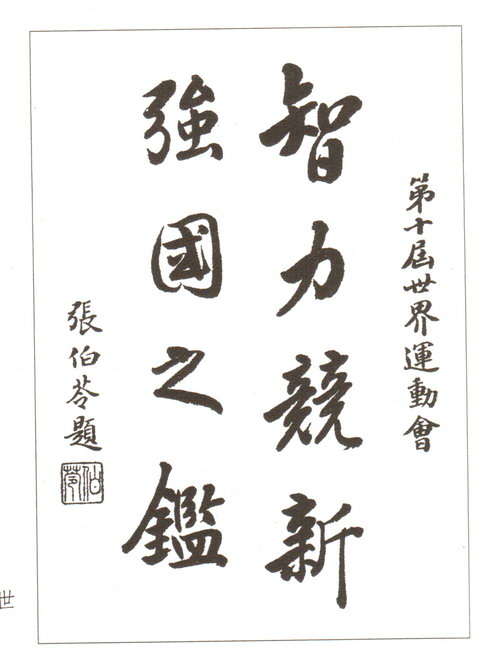 第十屆世界運動會
智力競新
強國之鑑
張伯苓題
伯苓
世